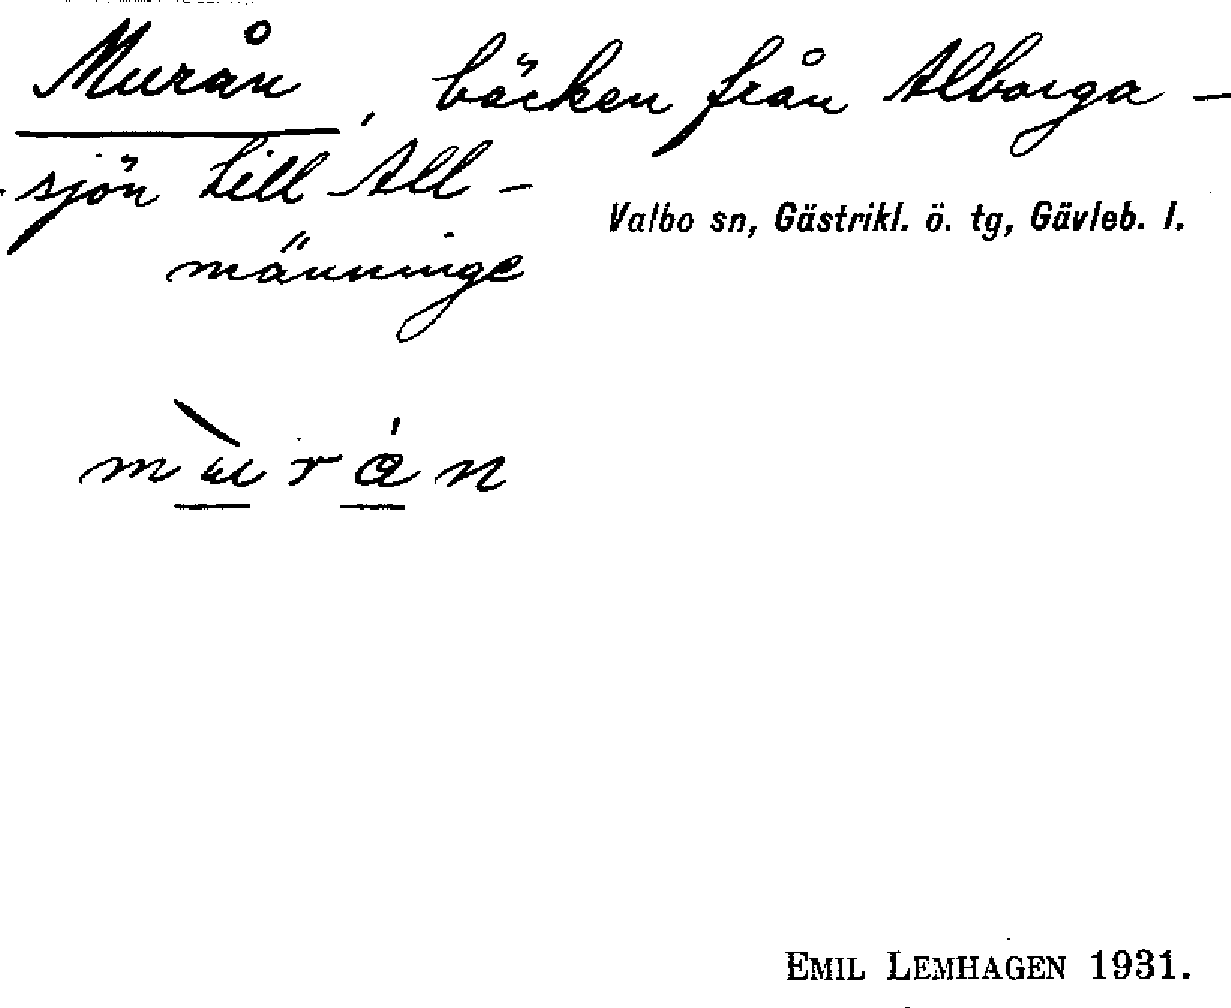 Murån, bäcken från Alborga-
sjön till All-
männinge
Valbo sn, Gästrikl. ö. tg, Gävleb. l.
mùrán
EMIL LEMHAGEN 1931.